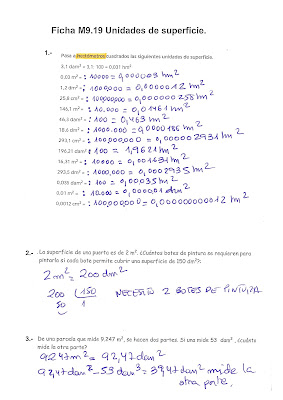 Ficha M9.19 Unidades de superficie.
1.- Pasa a hectómetros cuadrados las siguientes unidades de superficie.
3,1 dam² = 3,1: 100 = 0,031 hm²
0,03 m² = : 10000 = 0,000003 hm²
1,2 m² = : 10000 = 0,00012 hm²
25,8 cm² = : 100,000,000 = 0,000000258 hm²
146,1 m² = : 10,000 = 0,01461 hm²
46,3 dam² = : 100 = 0,463 hm²
18,6 dm² = : 1000,000 = 0,0000186 hm²
293,1 cm² = : 100,000,000 = 0,000002931 hm²
196,21 dam² = : 100 = 1,9621 hm²
16,31 m² = : 10000 = 0,001631 hm²
293,5 dm² = : 1000,000 = 0,0002935 hm²
0,035 dam² = : 100 = 0,00035 hm²
0,01 m² = : 10.000 = 0,000001 dm²
0,0012 cm² = : 100,000,000 = 0,000000000012 hm²
2.- La superficie de una puerta es de 2 m². ¿Cuántos botes de pintura se requieren para
pintarla si cada bote permite cubrir una superficie de 150 dm²?:
2 m² = 200 dm²
200 150 NECESITO 2 BOTES DE PINTURA
50 1
3.- De una parcela que mide 9.247 m², se hacen dos partes. Si una mide 53 dam², ¿cuánto
mide la otra parte?
9247 m² = 92,47 dam²
92,47 dam² - 53 dam² = 39,47 dam² mide la
otra parte.